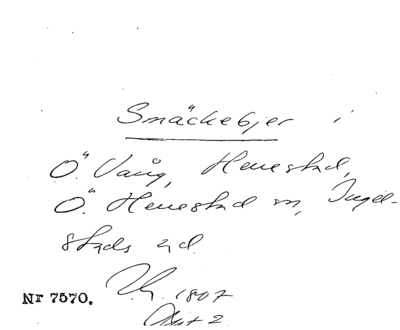 Smäckebjer i
Ö. Vång, Henestad,
Ö. Henestad sn, Ingel-
stads hd.
Nr 7570. 1807
Akt 2